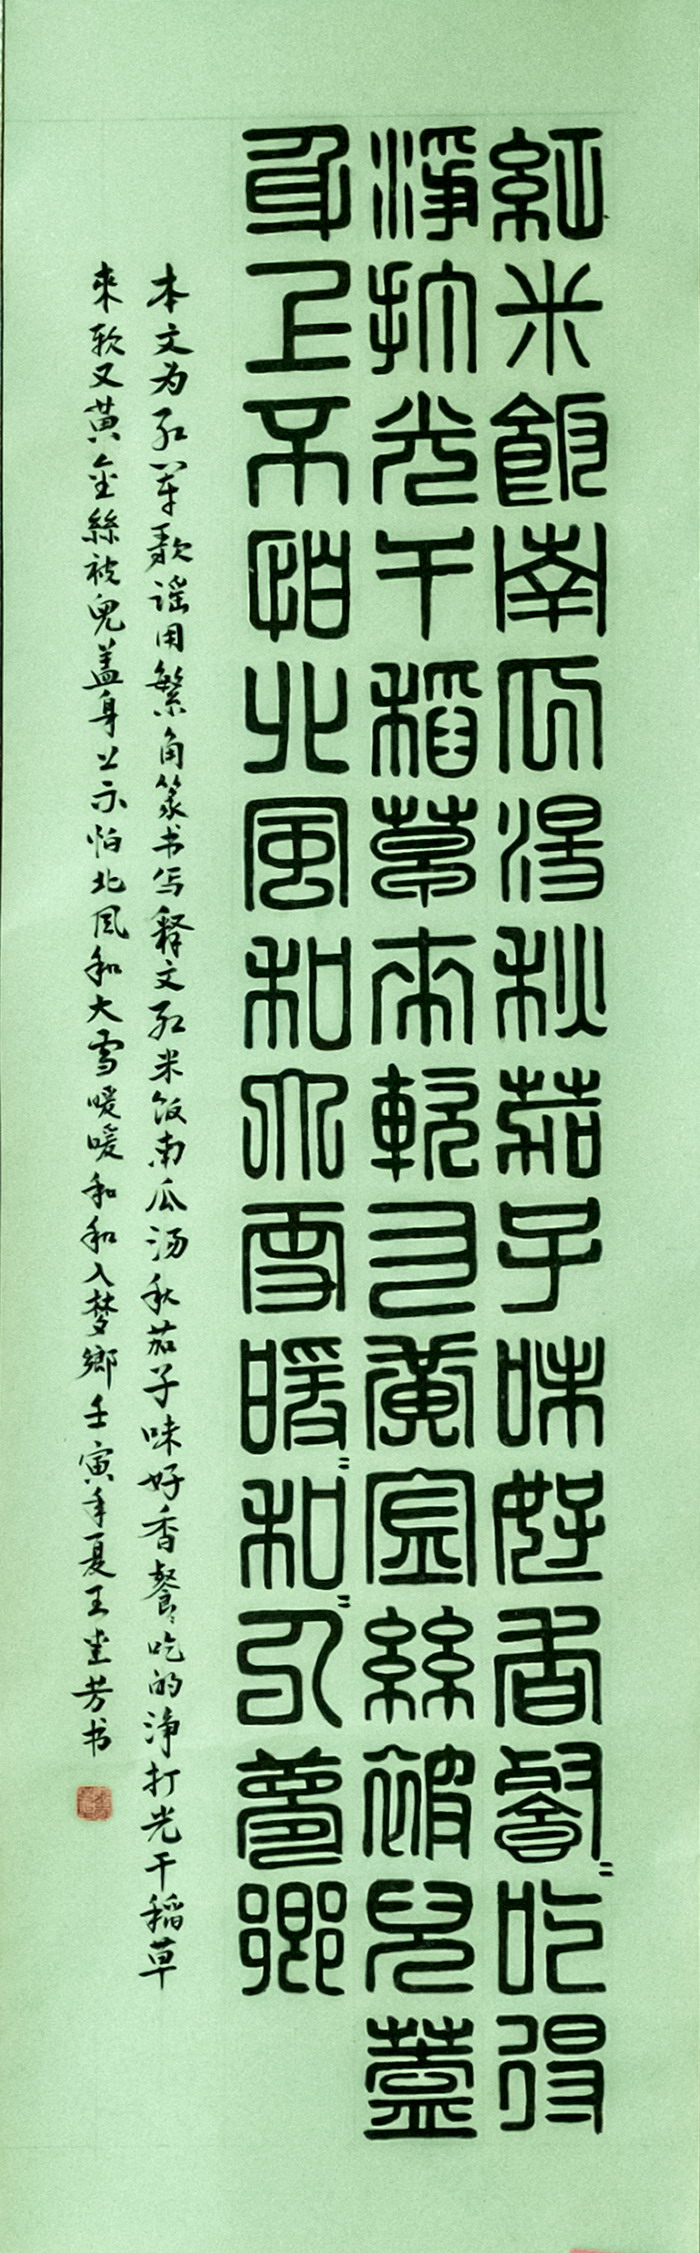 紅米飯南瓜湯秋茄子味好香餐〻吃得
淨打光干稻草來軟又黃金絲被兒蓋
身上不怕北風和大雪暖〻和〻入夢鄉
本文为红军歌謡用繁角篆书写释文红米饭南瓜汤秋茄子味好香餐〻吃的净打光干稻草
來軟又黃金絲被兒盖身上不怕北风和大雪暖暖和和入梦鄉壬寅年夏王坐芳书